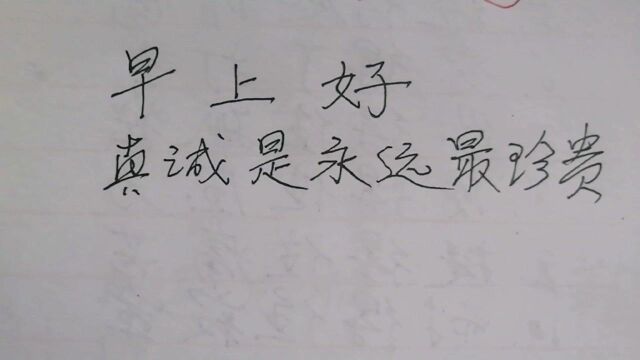 早上好
真诚是永远最珍贵